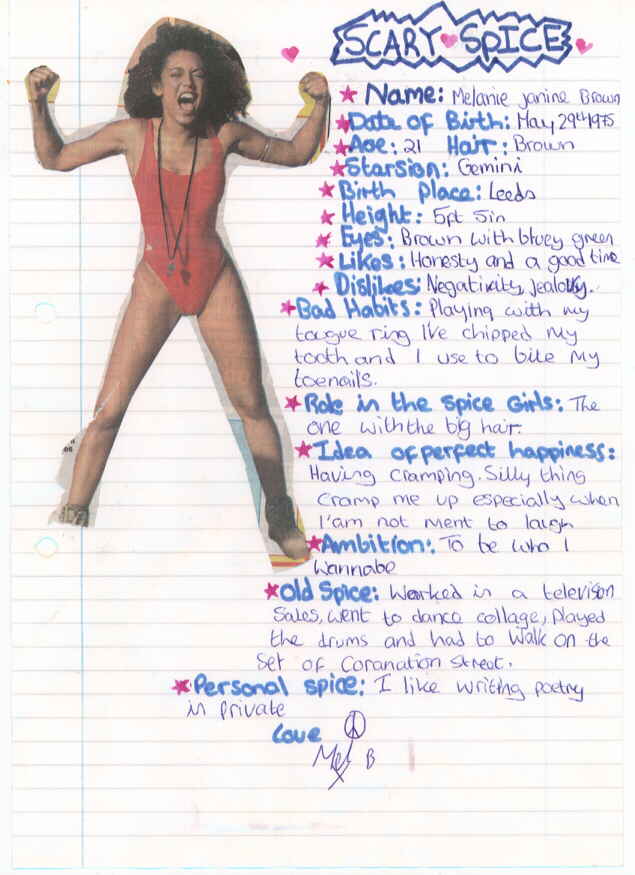 SCARY SPICE
Name: Melanie Janine Brown
Date of Birth: May 29th 1975
Age: 21 Hair: Brown
Starsion: Gemini
Birth Place: Leeds
Height: 5ft 5in
Eyes: Brown with bluey green
Likes: Honesty and a good time
Dislikes: Negativity, jealousy.
Bad Habits: Playing with my
tougue ring I've chipped my
tooth and I use to bite my
toenails.
Role in the Spice Girls: The
one with the big hair.
Idea of perfect happiness:
Having cramping. Silly thing
cramp me up especially when
I'am not ment to laugh
Ambition: To be who I
wannabe
Old Spice: Worked in a televison
sales, went to dance collage, played
the drums and had to walk on the
set of Coranation street.
Personal spice: I like writing poetry
in private
Love
Mel B